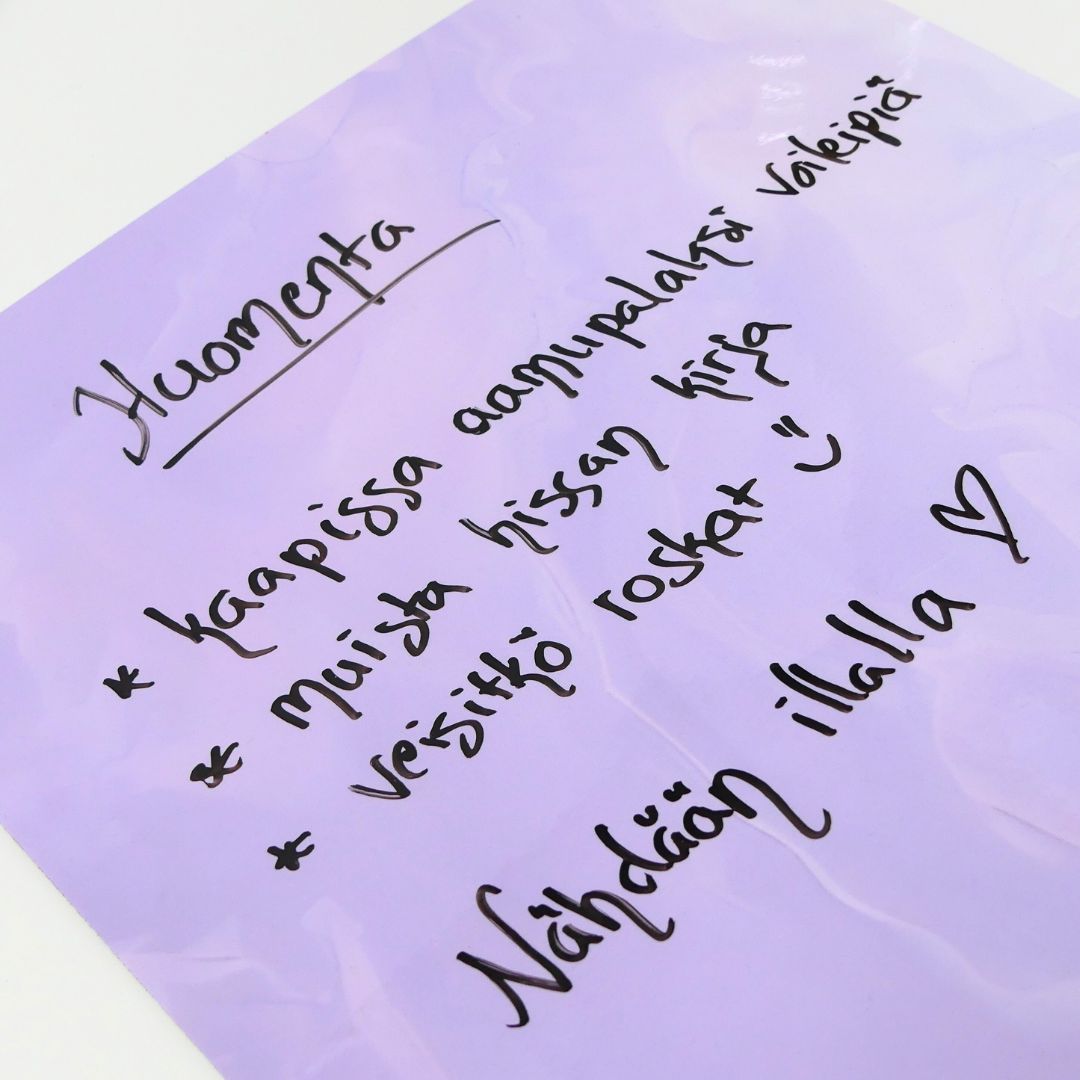 Huomenta
* kaapissa aamupalaksi voileipiä
* muista hissan kirja
* veisitkö roskat ü
Nähdään illalla ♡